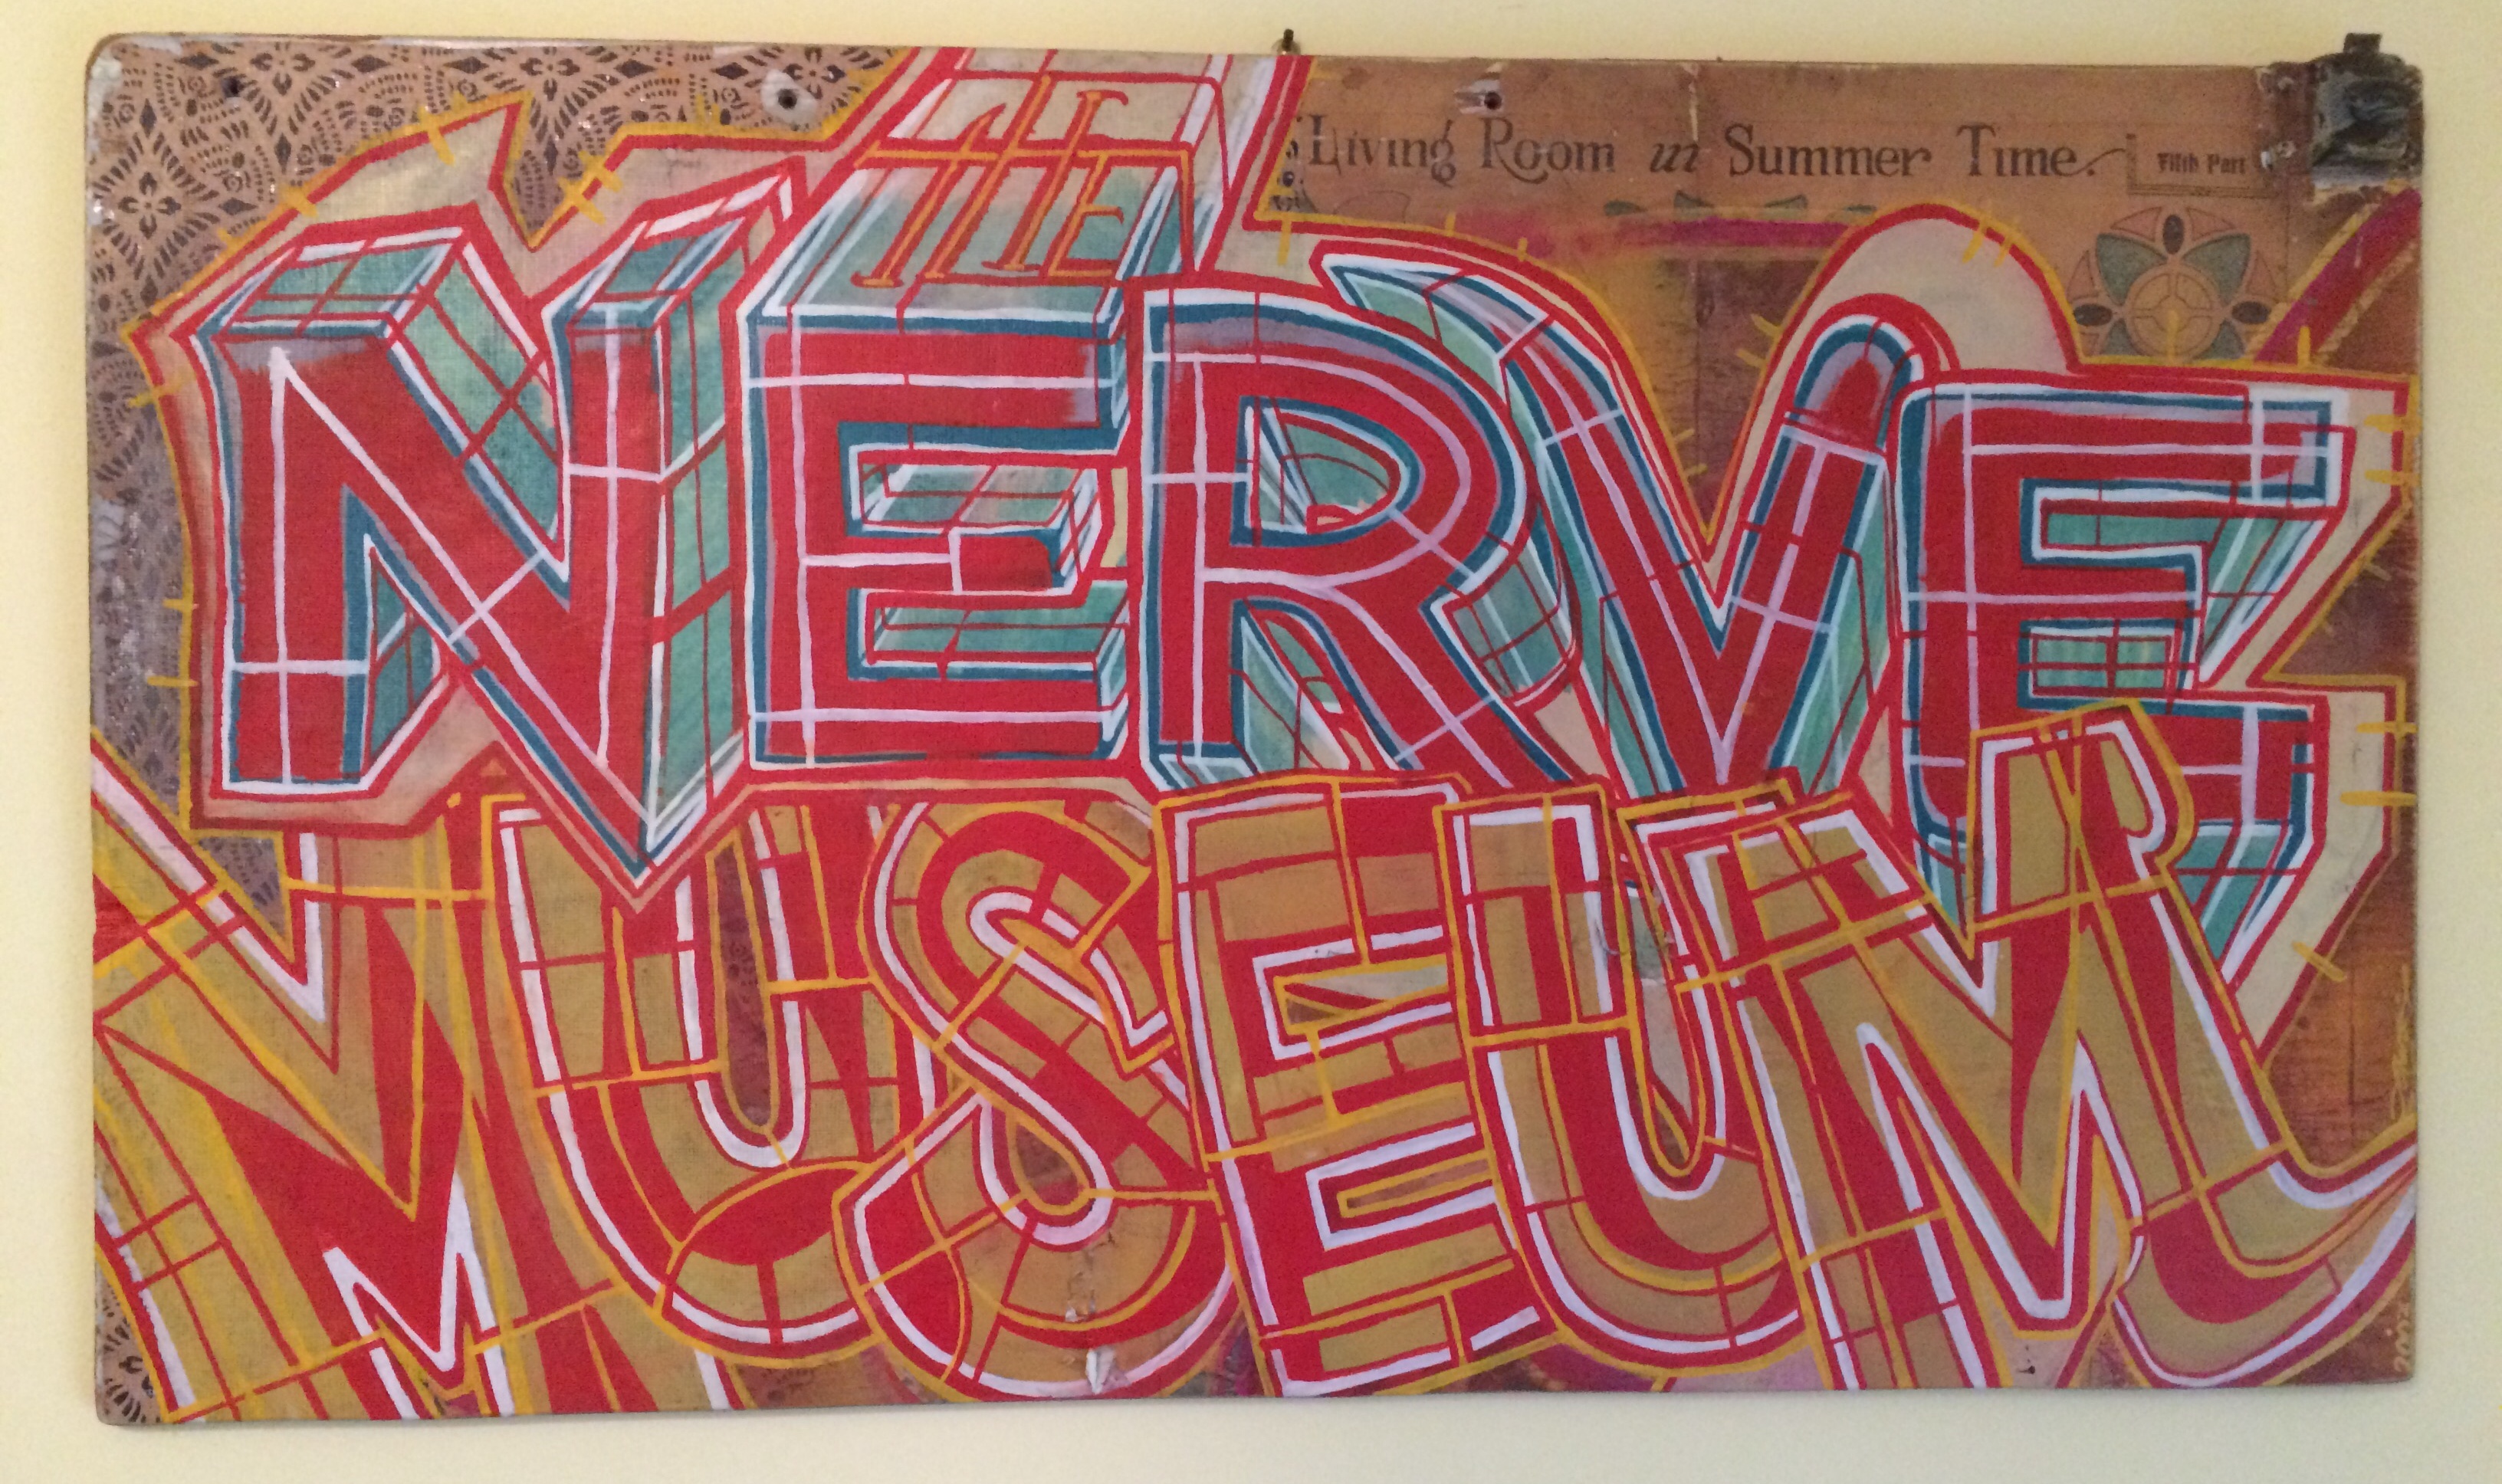 THE
Living Room in Summer Time.
Fifth Part
NERVE
MUSEUM